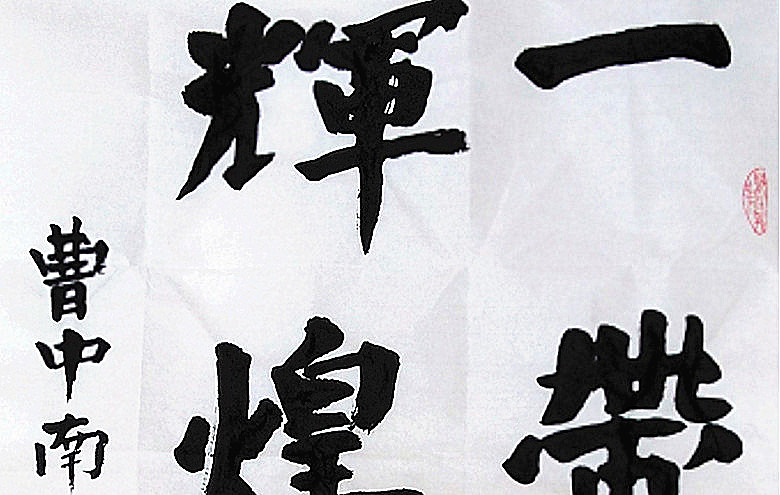 一帶
輝煌
曹中南